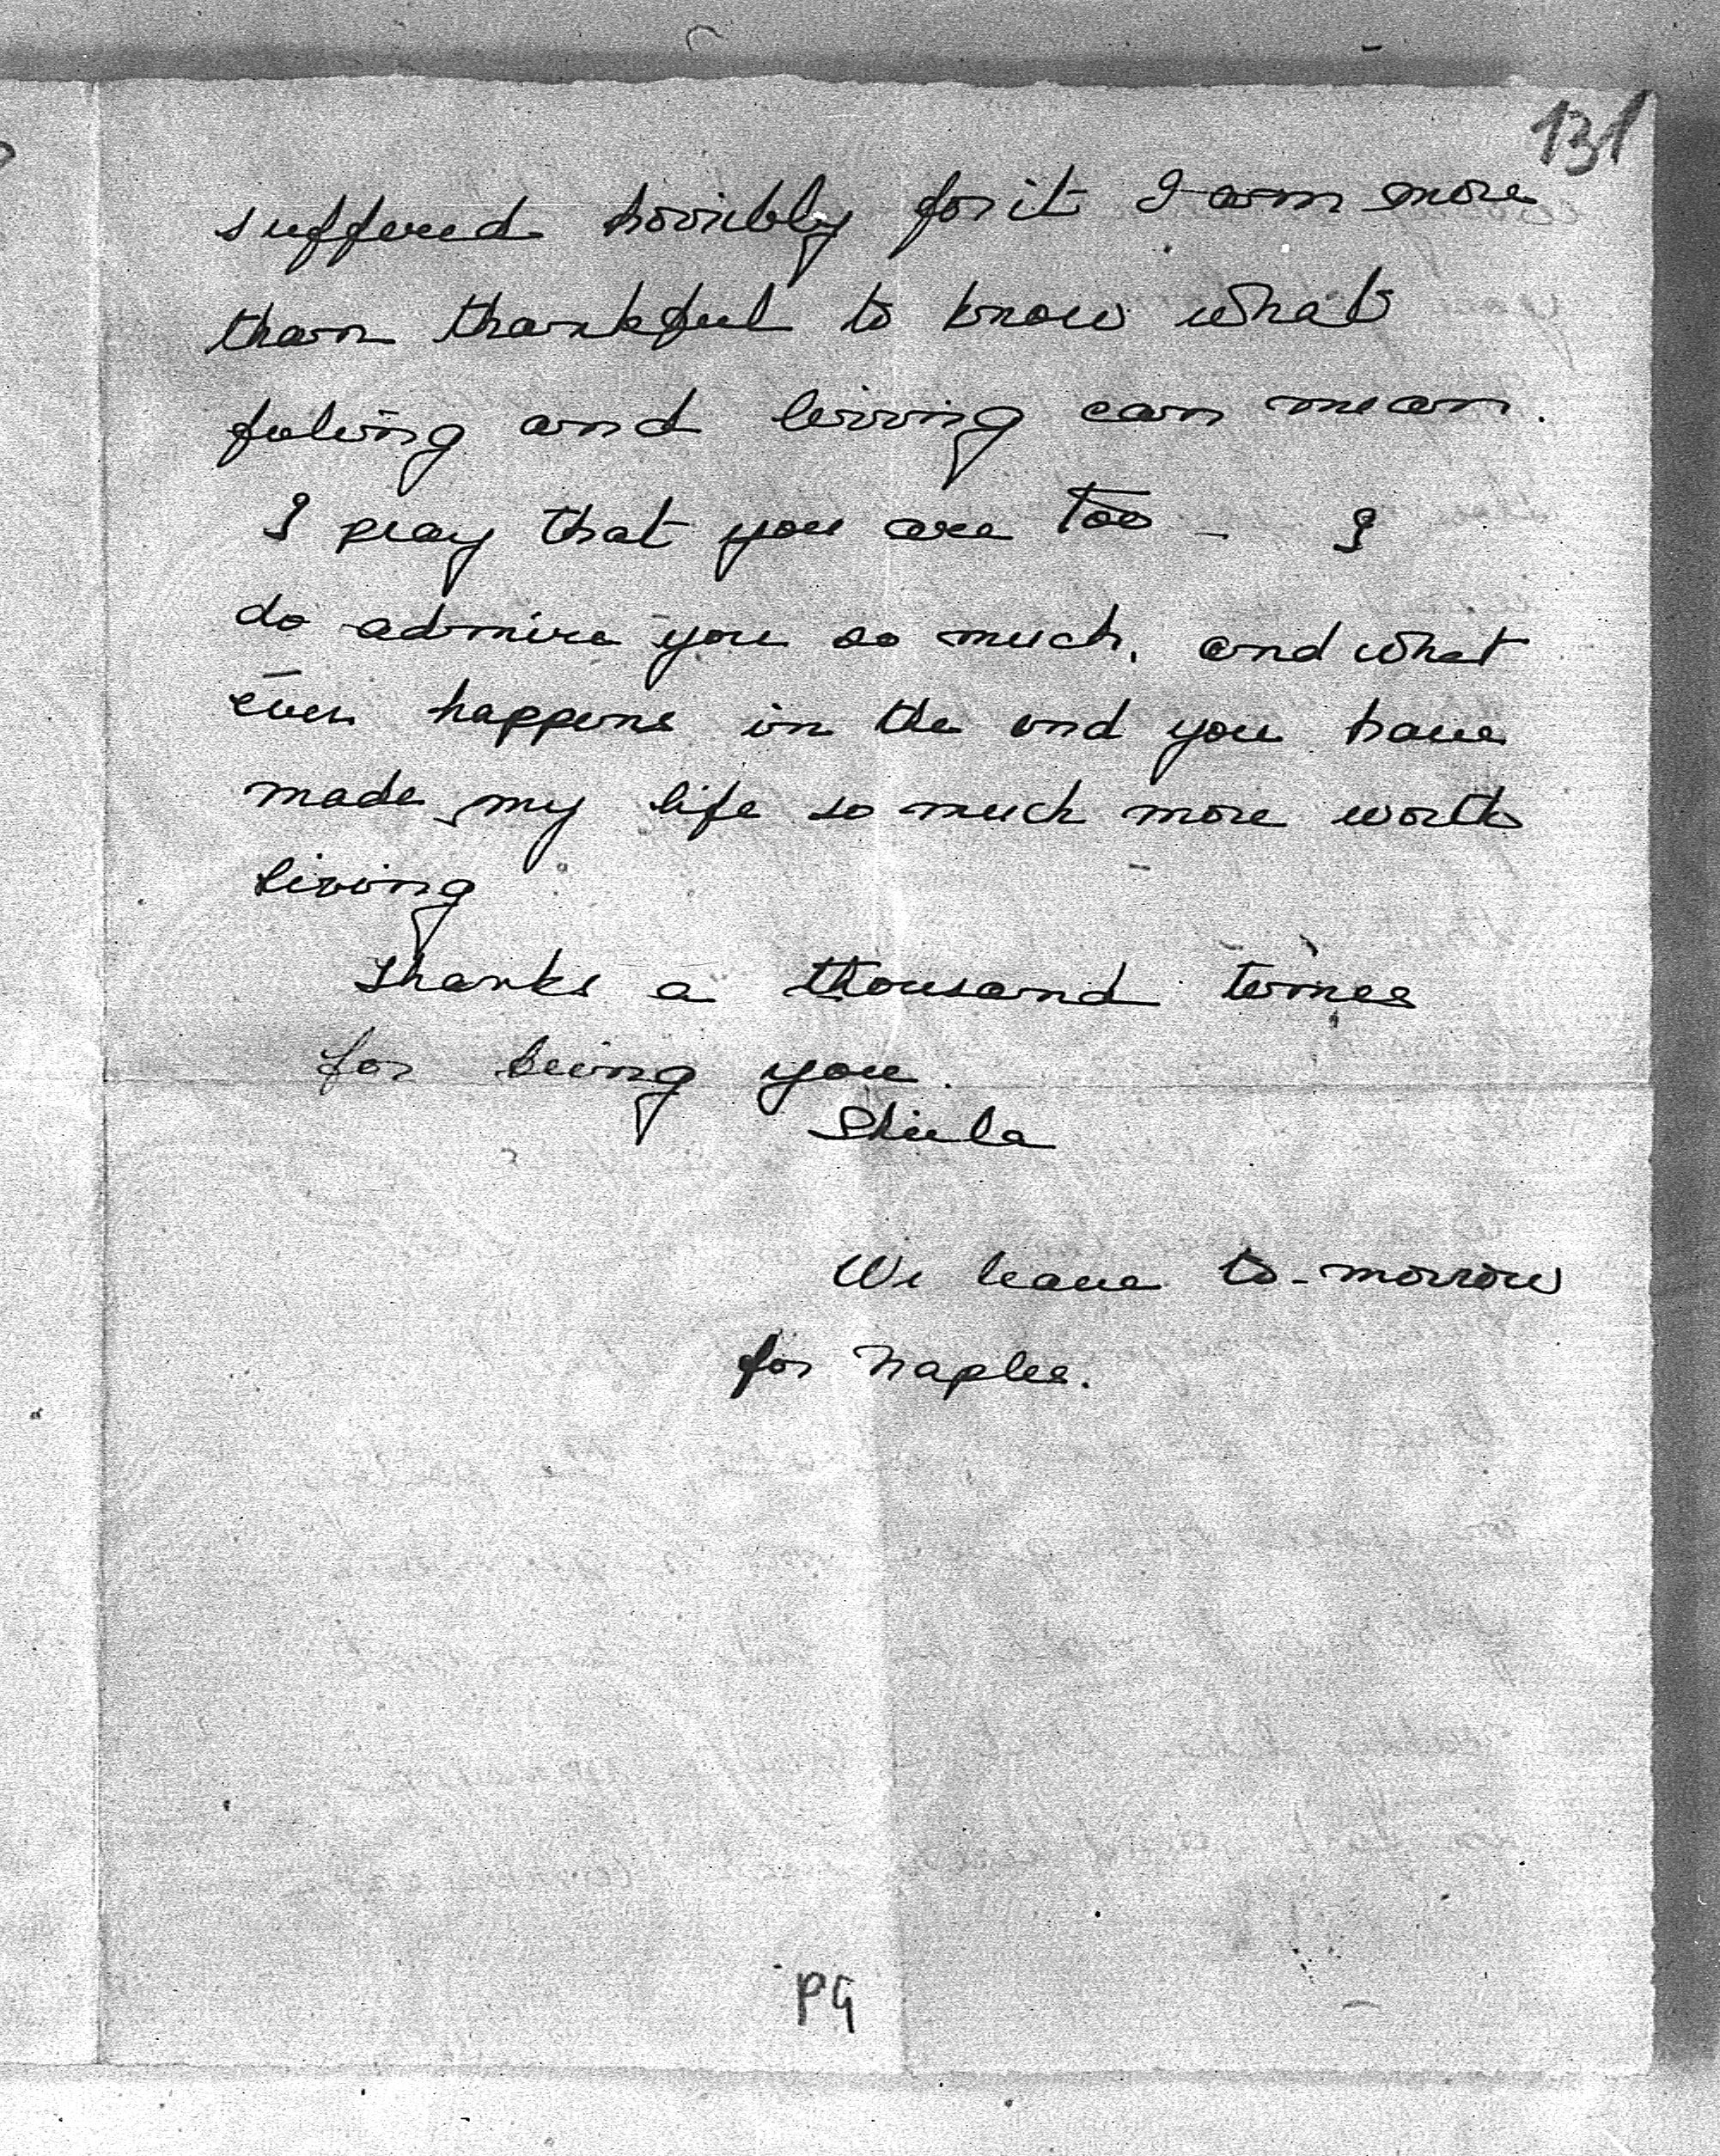 131
suffered horribly for it I am more
than thankful to know what
feeling and living can mean.
I pray that you are too - I
do admire you so much, and what
ever happens in the end you have
made my life so much more worth
living
Thanks a thousand times
for being you.
Sheila
We leave to-morrow
for Naples.
P9